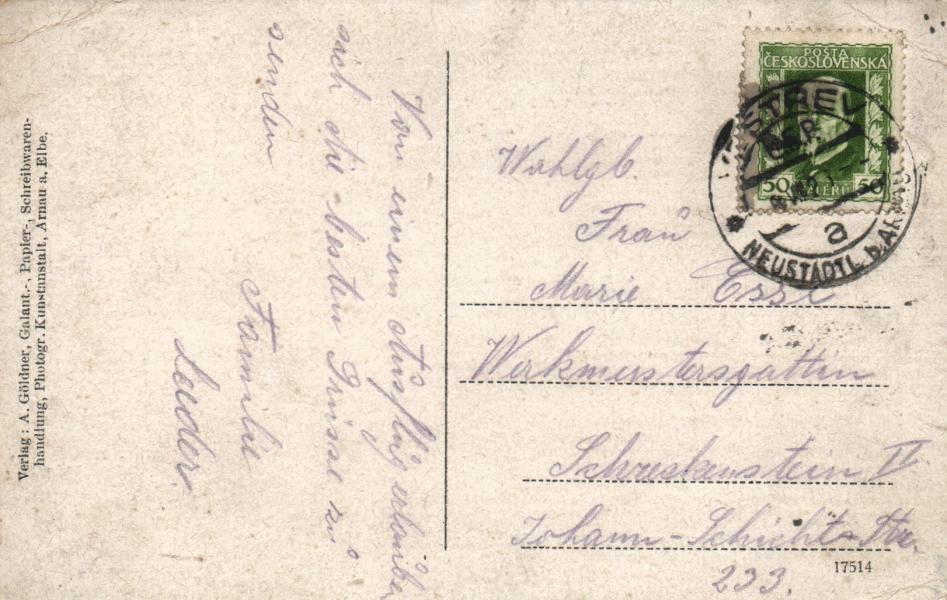 Verlag: A. Göldner, Galant.-, Papier-, Schreibwaren-
handlung, Photogr. Kunstanstalt, Arnau a. Elbe.
Von einem Ausflug erlauben
sich die besten Grüsse zu
senden
Familie
POŠTA
ČESKOSLOVENSKA
50 50
NEUSTADTL b. ARNAU
a
Wohlgb.
Frau
Marie Essl
Werkmeistersgattin
Schreckenstein II
Johann-Schicht-Str.
233.
17514